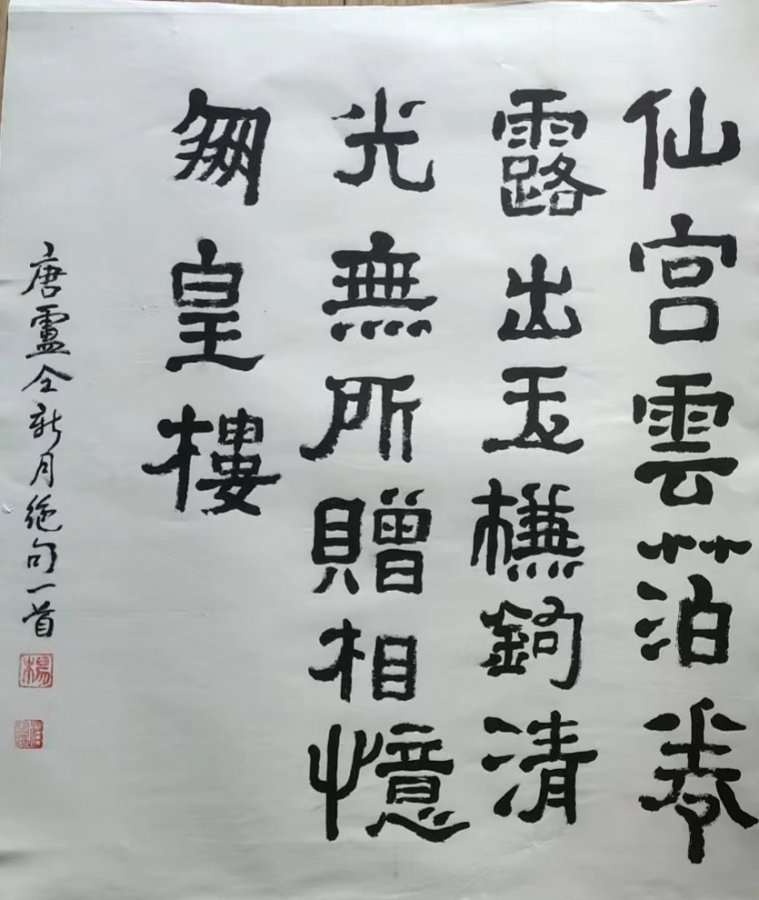 仙宮雲萡卷
露出玉槏鉤清
光無所贈相憶
鳳皇樓
唐盧仝新月絕句一首
楊